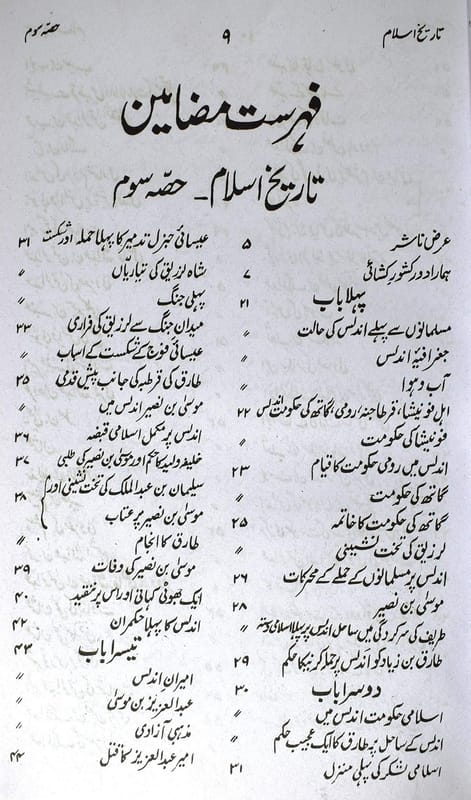 تاریخ اسلام ۹ حصہ سوم
فہرست مضامین
تاریخ اسلام ۔ حصہ سوم
عرض ناشر ۵
ہمارا دور کشور کشائی ۷
پہلا باب ۲۱
مسلمانوں سے پہلے اندلس کی حالت ״
جغرافیۂ اندلس ״
آب و ہوا ״
اہل فونیشیا، قرطاجنہ، رومی، گاتھ کی حکومت اندلس ۲۲
فونیشیا کی حکومت ״
اندلس میں رومی حکومت کا قیام ۲۳
گاتھ کی حکومت ״
گاتھ کی حکومت کا خاتمہ ۲۵
لرزیق کی تخت نشینی ״
اندلس پر مسلمانوں کے حملے کے محرکات ۲۶
موسیٰ بن نصیر ۲۸
طریف کی سرکردگی میں ساحل اندلس پر پہلا اسلامی دستہ ״
طارق بن زیاد کو اندلس پر حملہ کرنیکا حکم ۲۹
دوسرا باب ۳۰
اسلامی حکومت اندلس میں ״
اندلس کے ساحل پر طارق کا ایک عجیب حکم ״
اسلامی لشکر کی پہلی منزل ۳۱
عیسائی جنرل تدمیر کا پہلا حملہ اور شکست ۳۱
شاہ لرزیق کی تیاریاں ״
پہلی جنگ ״
میدان جنگ سے لرزیق کی فراری ۳۳
عیسائی فوج کے شکست کے اسباب ״
طارق کی قرطبہ کی جانب پیش قدمی ۳۵
موسیٰ بن نصیر اندلس میں ״
اندلس پر مکمل اسلامی قبضہ ۳۶
خلیفہ ولید کا حکم اور موسیٰ بن نصیر کی طلبی ۳۷
سلیمان بن عبدالملک کی تخت نشینی اور
موسیٰ بن نصیر پر عتاب ۳۸
طارق کا انجام ״
موسیٰ بن نصیر کی وفات ۳۹
ایک جھوٹی کہانی اور اس پر تنقید ۴۰
اندلس کا پہلا حکمران ۴۲
تیسرا باب ۴۳
امیران اندلس ״
عبدالعزیز بن موسیٰ ״
مذہبی آزادی ״
امیر عبدالعزیز کا قتل ۴۴